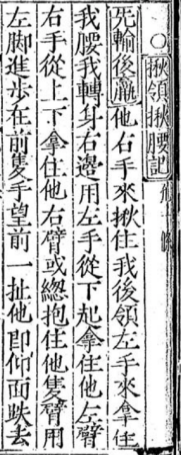 ○揪領揪腰記
先輸後贏他右手來揪住我後領左手來拿住
我腰我轉身右邊用左手從下起拿住他左臂
右手從上一下拿住他右臂或緫抱住他隻臂用
左脚進步在前隻手望前一扯他即仰面跌去